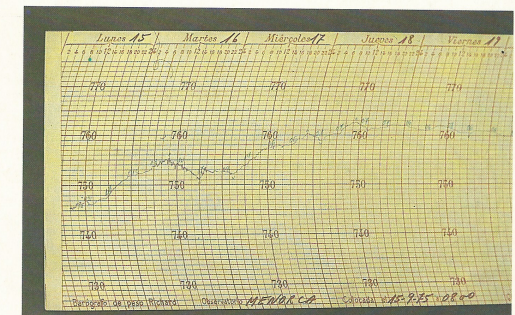 Lunes 15 Martes 16 Miércoles 17 Jueves 18 Viernes 19
770 770 770 770 770
760 760 760 760
750 750 750 750 750
740 740 740 740 740
730 730 730 730 730
Barógrafo de peso Richard Observatorio MENORCA Colocada 15-9-75 0800